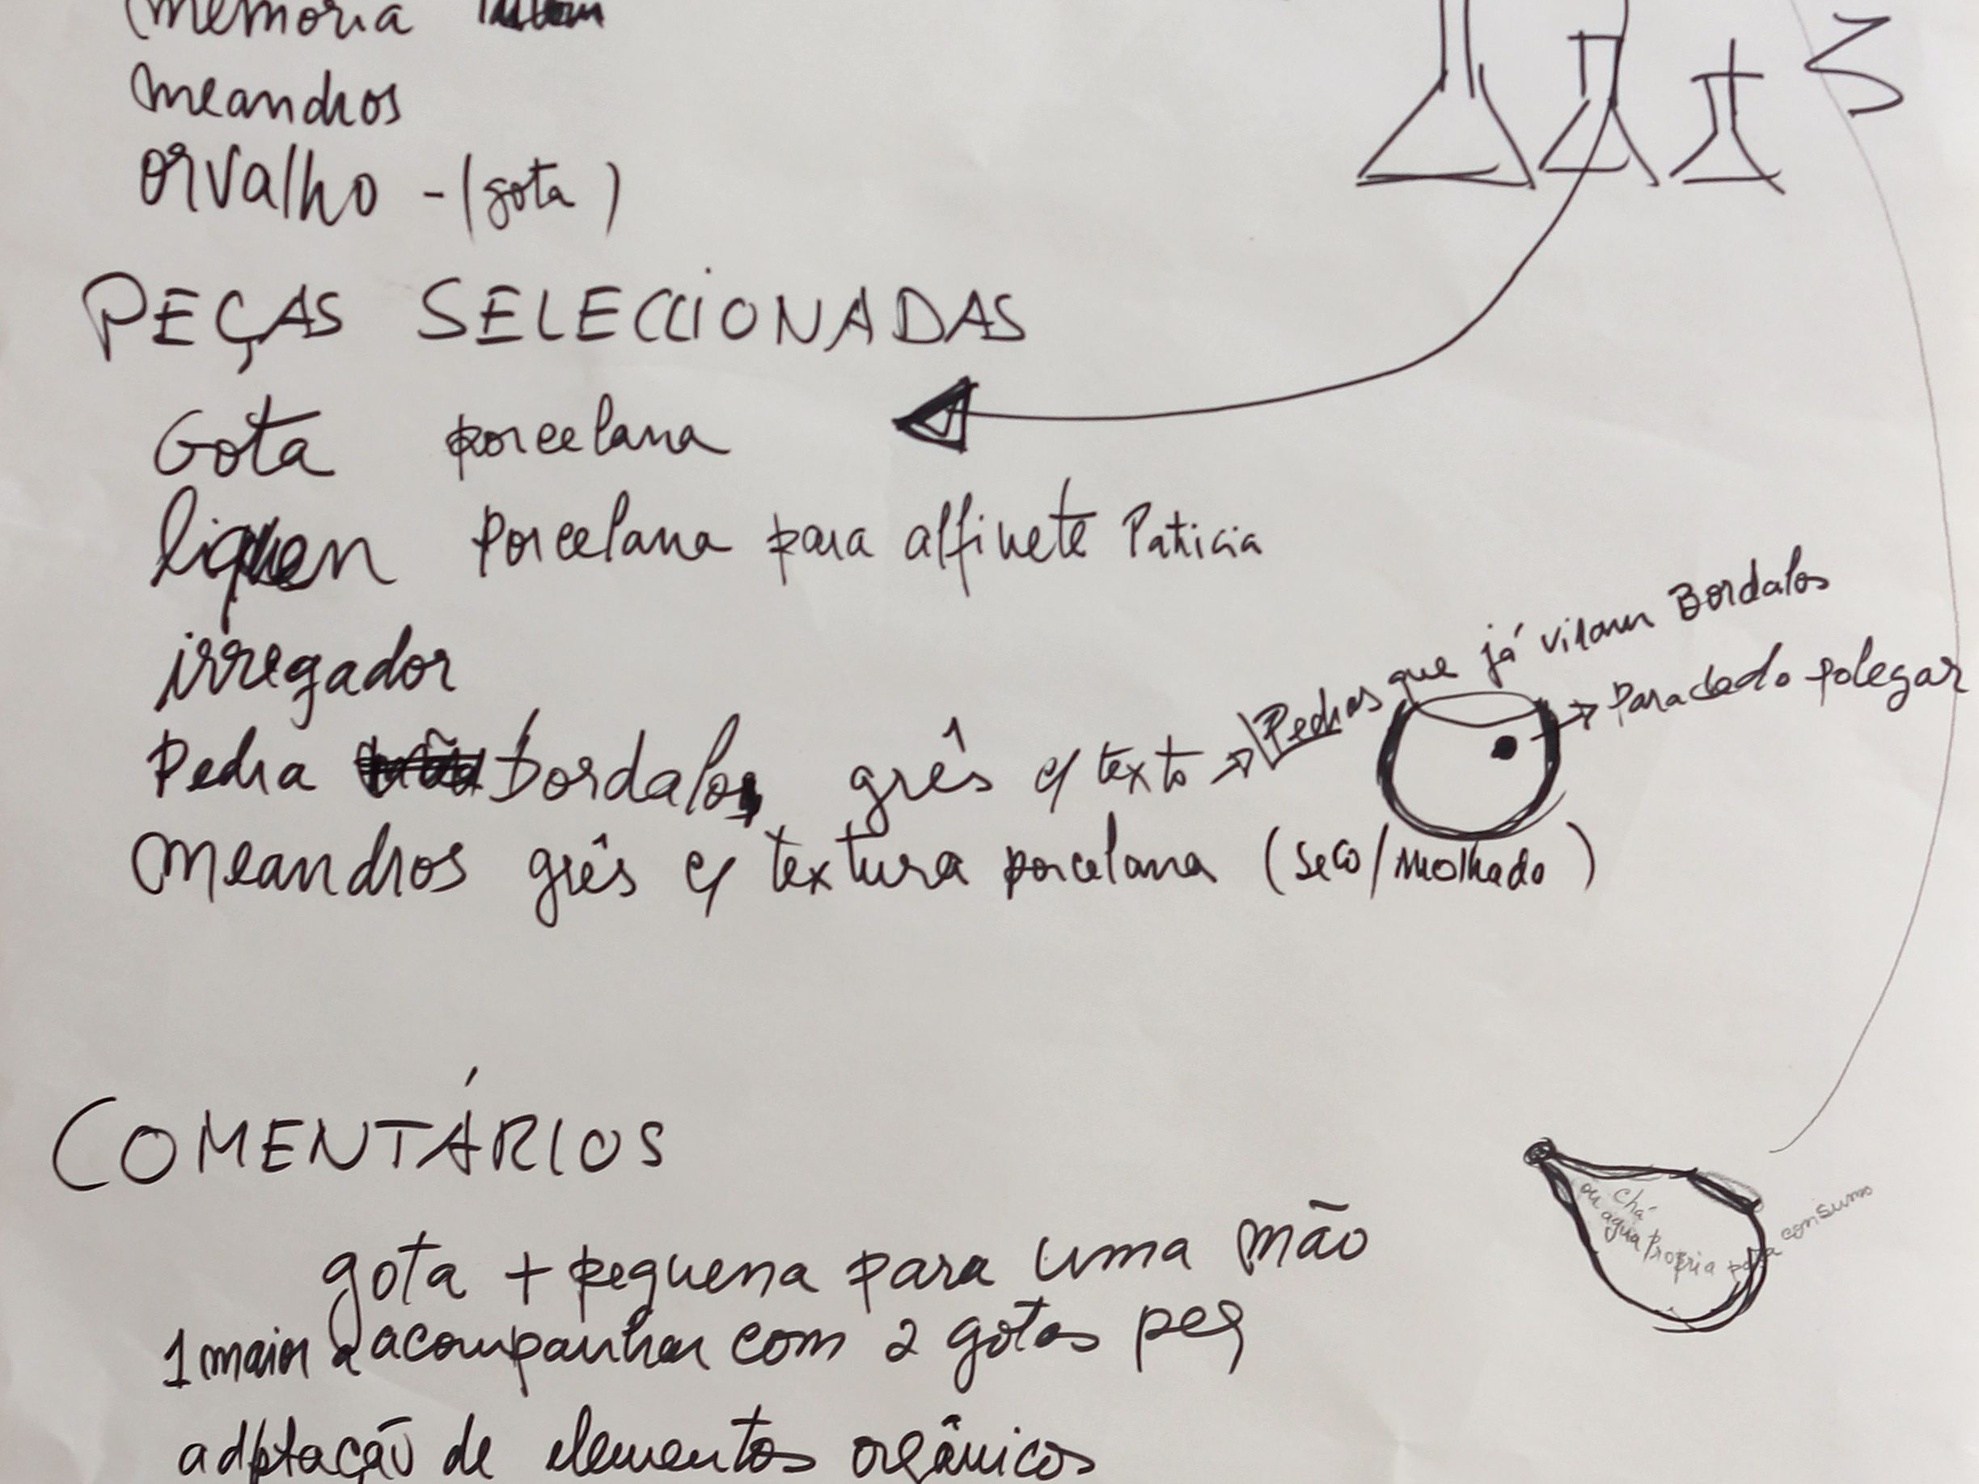 memória
meandros
3
orvalho - (gota)
PEÇAS SELECCIONADAS
Gota porcelana
liquen porcelana para alfinete Patricia
irregador
Pedra Bordalos, grês c/ texto → Pedras que já viram Bordalos
→ Para dedo polegar
meandros grês c/ textura porcelana (seco/molhado)
COMENTÁRIOS
chá
ou água própria para consumo
gota + pequena para uma mão
1 maior a acompanhar com 2 gotas peq
adptação de elementos orgânicos